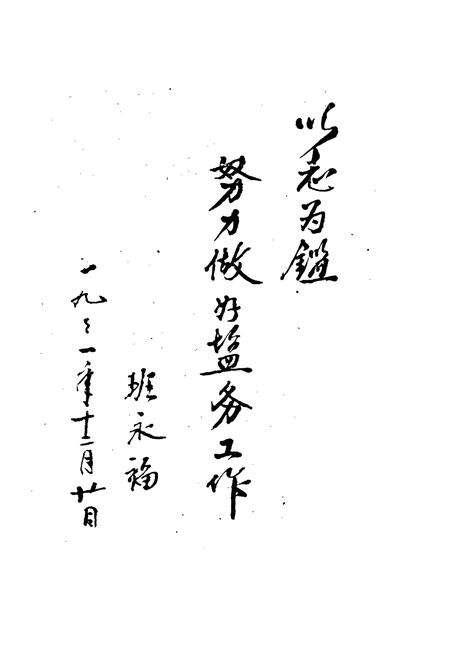 以志为鑑
努力做好盐务工作
班永福
一九九一年十二月廿日